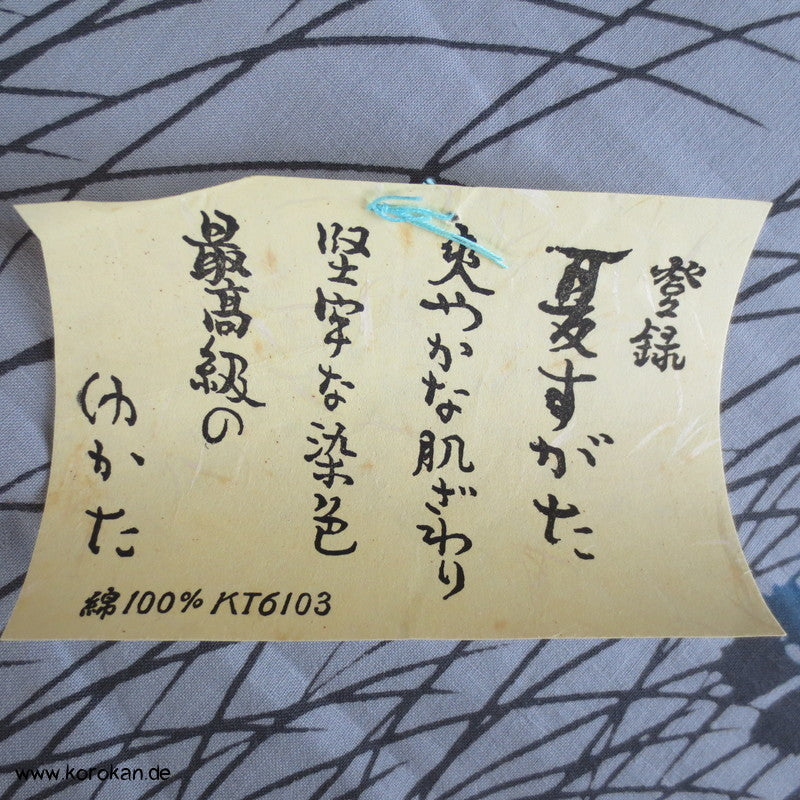 登録
夏すがた
爽やかな肌ざわり
堅牢な染色
最高級の
ゆかた
綿100% KT6103
www.korokan.de